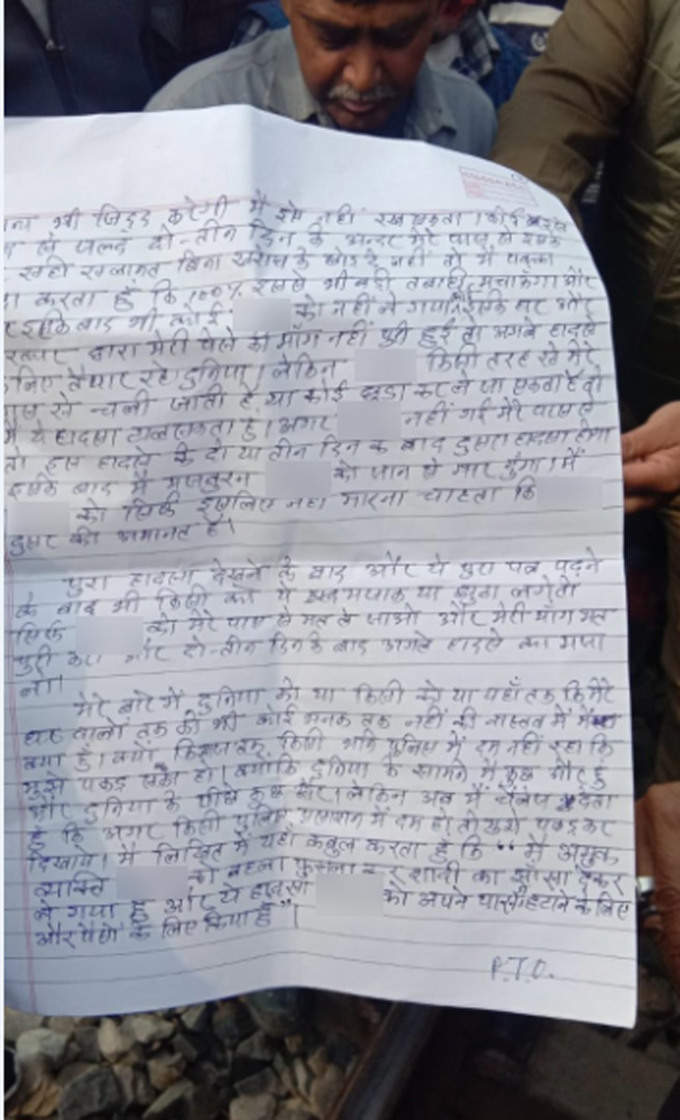 भी जिद्द करेगी मैं इसे नहीं रख सकता। कोई
जल्द दो-तीन दिन के अन्दर मेरे पास से इसके
सही सलामत बिना खरोंच के नहीं तो मैं पक्का
करता हूँ कि 100% इससे भी बड़ी तबाही मचाऊँगा और
इसके बाद भी कोई को नहीं ले गया इसके घर और
द्वारा मेरी पैसे की माँग नहीं पुरी हुई तो अगले हादसे
लिए तैयार रहे दुनिया। लेकिन किसी तरह से मेरे
पास से चली जाती है, या कोई कर ले जा सकता है तो
मैं ये हादसा टाल सकता हूँ। अगर नहीं गई मेरे पास से
तो इस हादसे के दो या तीन दिन के बाद दुसरा हादसा होगा
इसके बाद मैं मजबुरन को जान से मार दुंगा। मैं
को सिर्फ इसलिए नहीं मारना चाहता कि
दुसरे की अमानत है।
पुरा हादसा देखने के बाद और ये पुरा पत्र पढ़ने
के बाद भी किसी को ये मजाक या झुठा लगे तो
सिर्फ को मेरे पास से मत ले जाओ और मेरी माँग मत
पुरी करो और दो-तीन दिन के बाद अगले हादसे का मजा
लो।
मेरे बारे में दुनिया को या किसी को या यहाँ तक कि मेरे
घर वालों तक को भी कोई भनक तक नहीं की वास्तव में मैं
क्या हूँ। क्यों किसी भी पुलिस में दम नहीं रहा कि
मुझे पकड़ सके हो। क्योंकि दुनिया के सामने मैं कुछ और हूँ
और दुनिया के पीछे कुछ और। लेकिन अब मैं चैलेंज देता
हूँ कि अगर किसी पुलिस प्रशासन में दम हो तो मुझे पकड़कर
दिखाये। मैं लिखित में यहाँ कबुल करता हूँ कि "मैं अमुक
व्यक्ति को बहला फुसलाकर शादी का झाँसा देकर
ले गया हूँ और ये हादसा को अपने पास से हटाने के लिए
और पैसों के लिए किया हूँ"।
P.T.O.